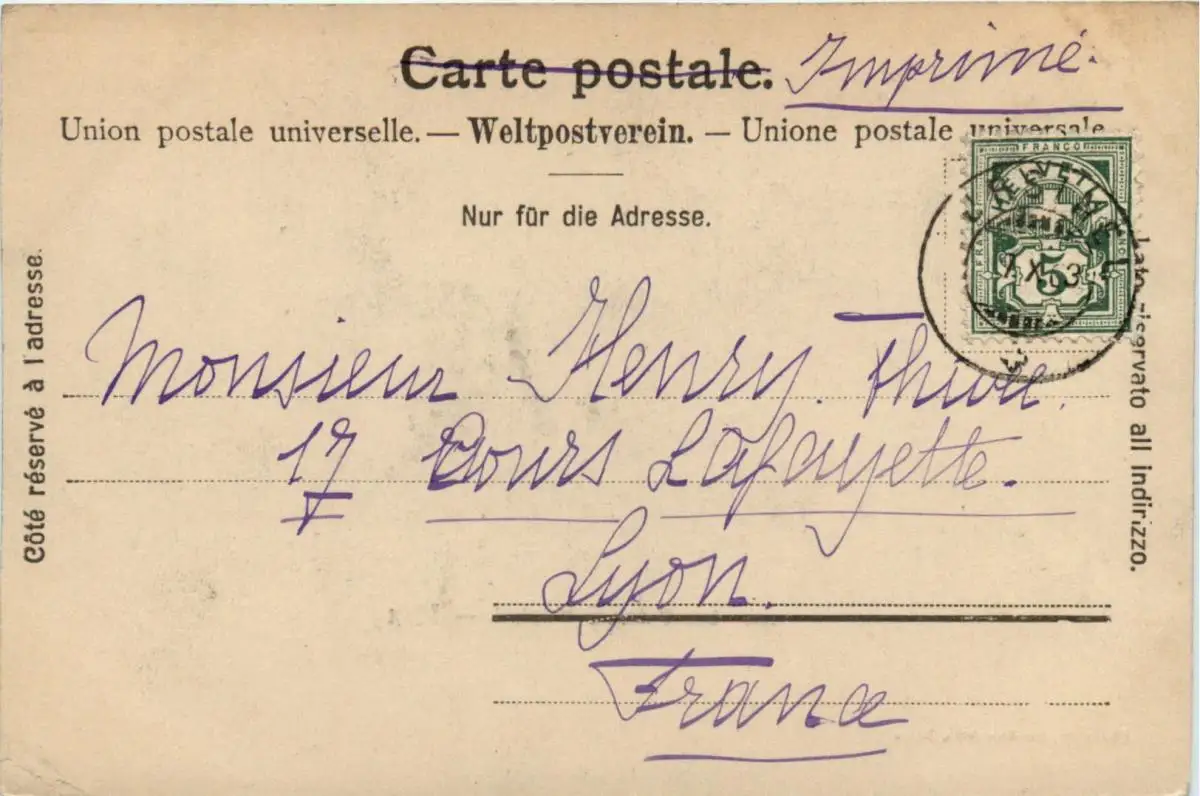 Carte postale. Imprimé.
Union postale universelle. — Weltpostverein. — Unione postale universale
Nur für die Adresse.
Côté réservé à l'adresse.
Lato riservato all indirizzo.
FRANCO
HELVETIA
5
Monsieur Henry
17 Cours Lafayette.
Lyon.
France